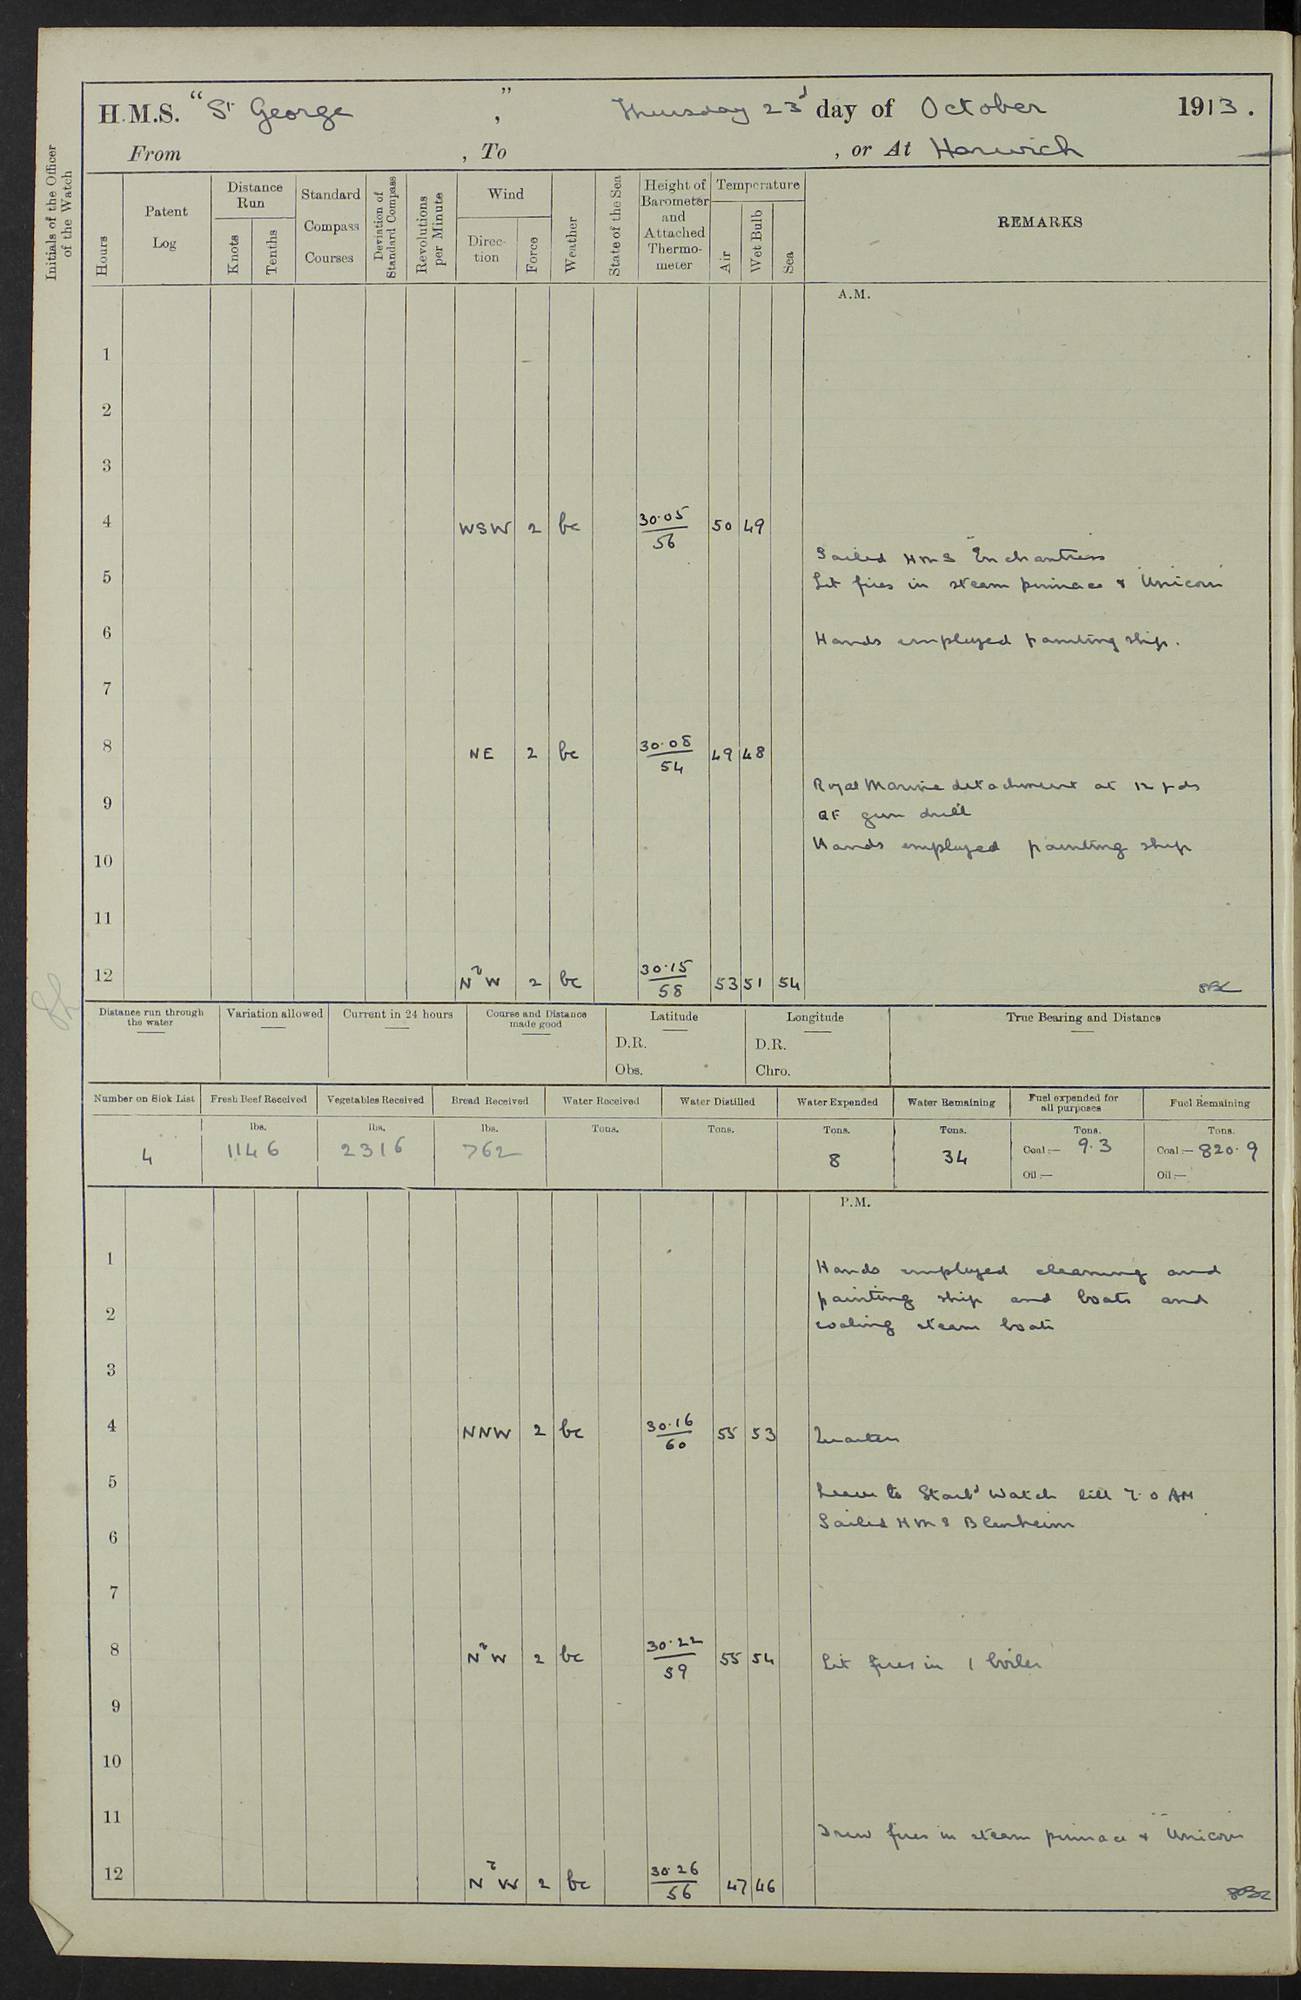 H.M.S. "St George", Thursday 23d day of October 1913.
From , To , or At Harwich
Initials of the Officer of the Watch
Hours
Patent Log
Distance Run
Knots
Tenths
Standard Compass Courses
Deviation of Standard Compass
Revolutions per Minute
Wind
Direction
Force
Weather
State of the Sea
Height of Barometer and Attached Thermometer
Temperature
Air
Wet Bulb
Sea
REMARKS
A.M.
1
2
3
4 WSW 2 bc 30.05/56 50 49
Sailed HMS "Enchantress"
5 Lit fires in steam pinnace & "Unicorn"
6 Hands employed painting ship.
7
8 NE 2 bc 30.08/54 49 48
Royal Marine detachment at 12 pds
9 QF gun drill
10 Hands employed painting ship
11
12 N W 2 bc 30.15/58 53 51 54
Distance run through the water
Variation allowed
Current in 24 hours
Course and Distance made good
Latitude
D.R.
Obs.
Longitude
D.R.
Chro.
True Bearing and Distance
Number on Sick List
Fresh Beef Received
Vegetables Received
Bread Received
Water Received
Water Distilled
Water Expended
Water Remaining
Fuel expended for all purposes
Fuel Remaining
lbs. lbs. lbs. Tons. Tons. Tons. Tons. Tons. Tons.
4 1146 2316 762 8 34 Coal:— 9.3 Coal:— 820.9
Oil:— Oil:—
P.M.
1 Hands employed cleaning and
painting ship and boats and
2 coaling steam boats
3
4 NNW 2 bc 30.16/60 55 53 Quarters
5 Leave to Starbd Watch till 7.0 AM
Sailed HMS Blenheim
6
7
8 N W 2 bc 30.22/59 55 54 Lit fires in 1 boiler
9
10
11 Drew fires in steam pinnace & "Unicorn"
12 N W 2 bc 30.26/56 47 46